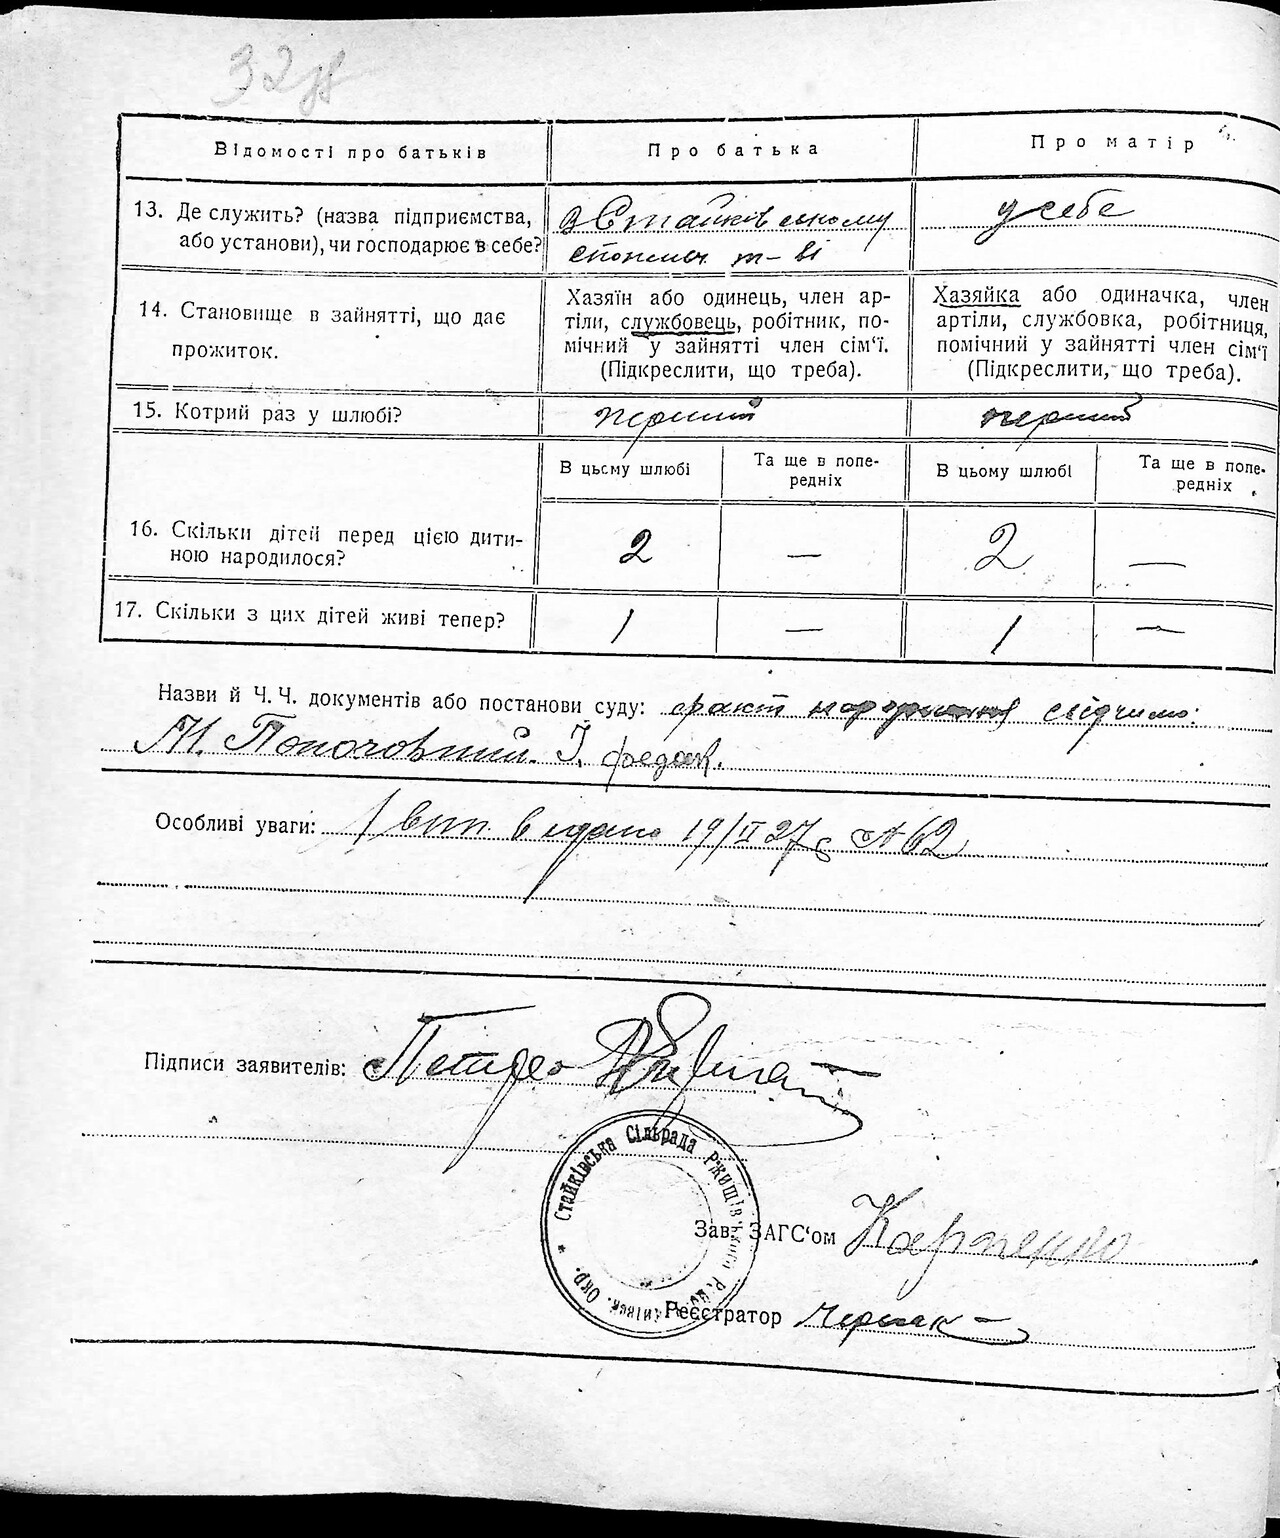 32
Відомості про батьків
Про батька
Про матір
13. Де служить? (назва підприємства,
або установи), чи господарює в себе?
в Стайківському
спожив т-ві
у себе
14. Становище в зайнятті, що дає
прожиток.
Хазяїн або одинець, член ар-
тілі, службовець, робітник, по-
мічний у зайнятті член сім'ї.
(Підкреслити, що треба).
Хазяйка або одиначка, член
артілі, службовка, робітниця,
помічний у зайнятті член сім'ї
(Підкреслити, що треба).
15. Котрий раз у шлюбі?
перший
перший
В цьому шлюбі
Та ще в попе-
редніх
В цьому шлюбі
Та ще в попе-
редніх
16. Скільки дітей перед цією дити-
ною народилося?
2
—
2
—
17. Скільки з цих дітей живі тепер?
1
—
1
—
Назви й Ч. Ч. документів або постанови суду: факт народження свідчимо:
І. Федак.
Особливі уваги: вип. видано 19/II 27 №62
Підписи заявителів: Петро
Стайківська Сільрада Ржищівського Р. Київськ. Окр. *
Зав. ЗАГС'ом Карпенко
Реєстратор Черпак